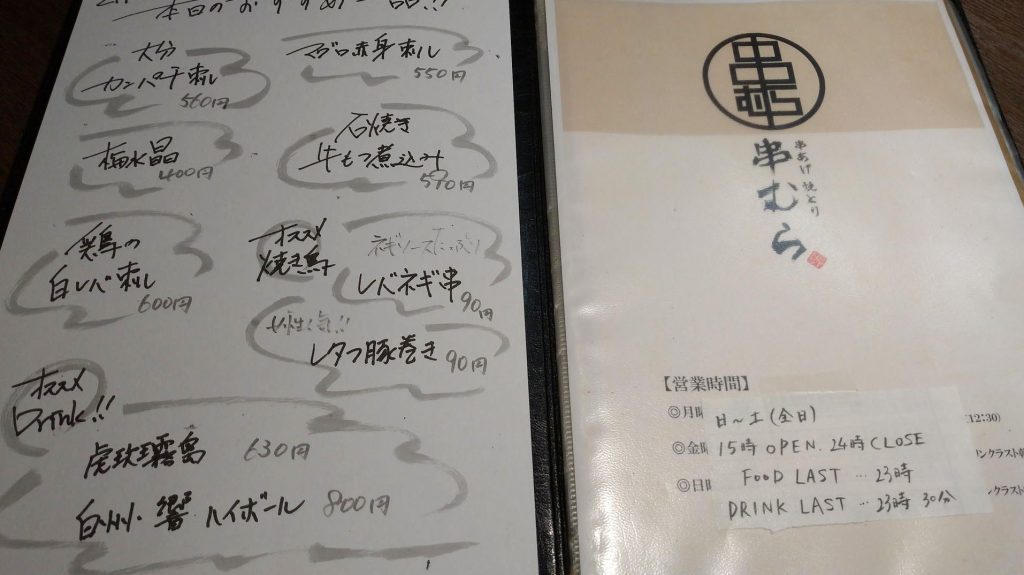 本日のおすすめ一品!!
大分
カンパチ刺し
560円
マグロ赤身刺し
550円
梅水晶
400円
石焼き
牛もつ煮込み
590円
鶏の
白レバ刺し
600円
オススメ
焼き鳥
ネギソースたっぷり
レバネギ串
90円
女性人気!!
レタス豚巻き
90円
オススメ
Drink!!
虎斑霧島
630円
白州・響 ハイボール 800円
串むら
串あげ 焼とり
串むら
【営業時間】
◎月
◎金
◎日
日〜土(全日)
15時 OPEN. 24時 CLOSE
FOOD LAST … 23時
DRINK LAST … 23時 30分
12:30)
ンクラスト
ンクラスト